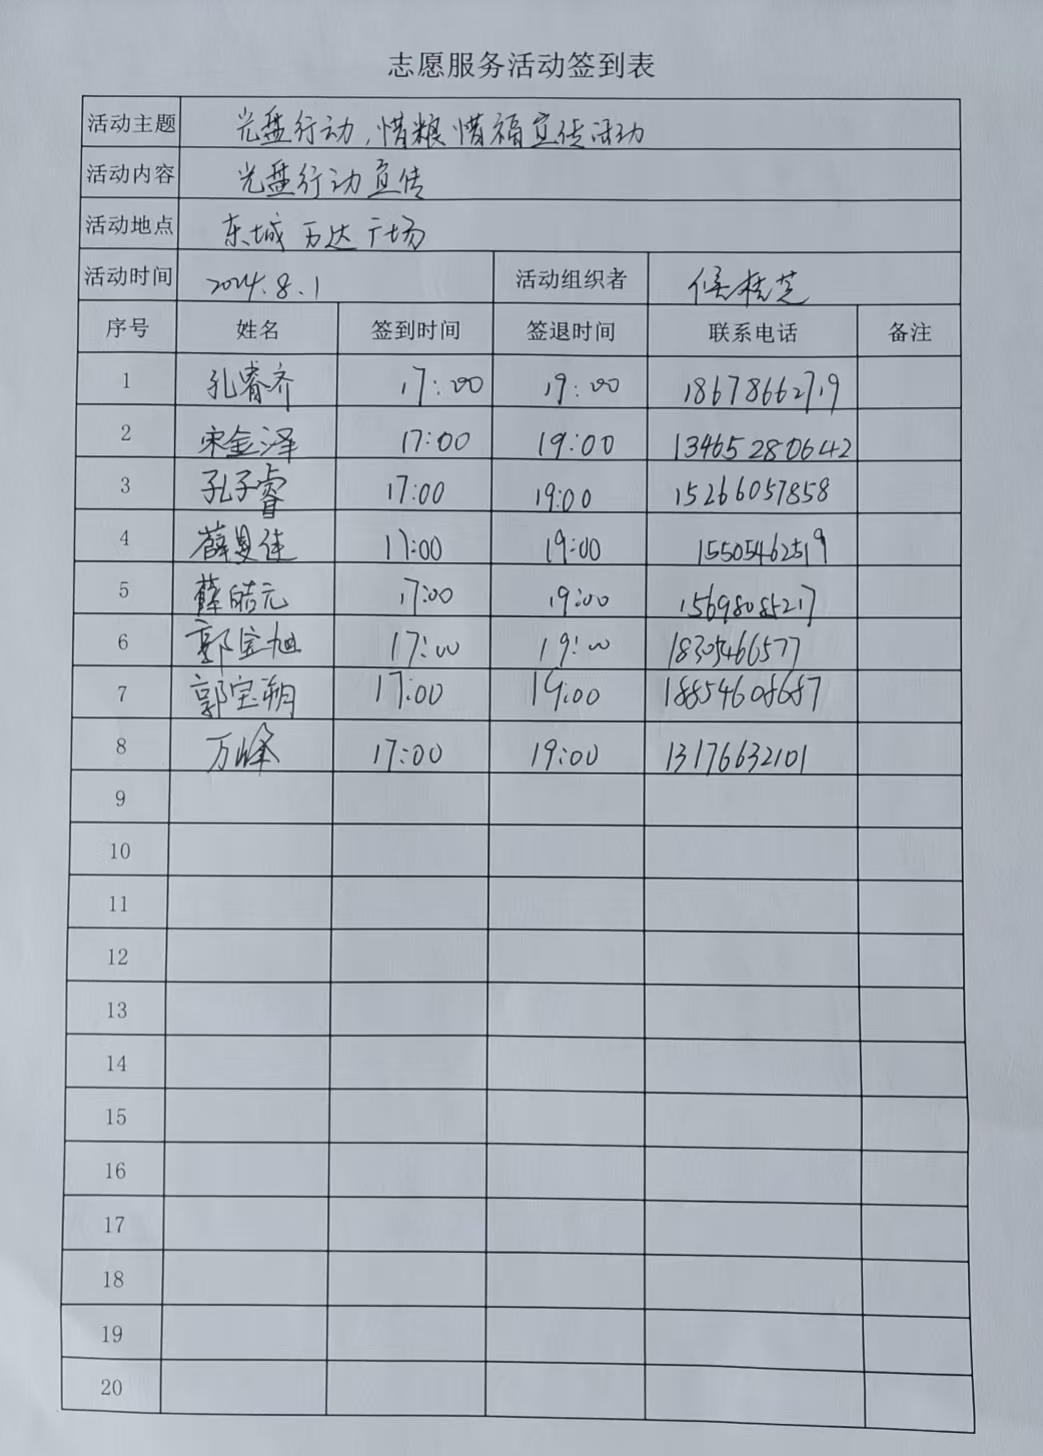 志愿服务活动签到表
活动主题 光盘行动，惜粮惜福宣传活动
活动内容 光盘行动宣传
活动地点 东城万达广场
活动时间 2024.8.1 活动组织者 侯桂芝
序号 姓名 签到时间 签退时间 联系电话 备注
1 孔睿齐 17:00 19:00 18678662719
2 宋金泽 17:00 19:00 13465280642
3 孔子睿 17:00 19:00 15266057858
4 薛曼佳 17:00 19:00 15505462519
5 薛皓元 17:00 19:00 15698085217
6 郭宝旭 17:00 19:00 18305466577
7 郭宝朔 17:00 19:00 18854608687
8 万峰 17:00 19:00 13176632101
9
10
11
12
13
14
15
16
17
18
19
20